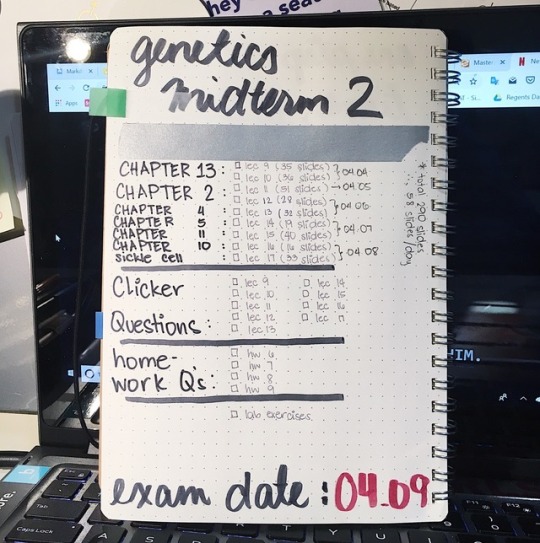 hey
a seat
genetics
midterm 2
CHAPTER 13: □ lec 9 (35 slides) } 04.04
□ lec 10 (36 slides)
CHAPTER 2: □ lec 11 (51 slides) → 04.05
CHAPTER 4: □ lec 12 (28 slides) } 04.06
□ lec 13 (32 slides)
CHAPTER 5: □ lec 14 (19 slides) } 04.07
CHAPTER 11: □ lec 15 (40 slides)
CHAPTER 10: □ lec 16 (16 slides) } 04.08
sickle cell □ lec 17 (33 slides)
* total 290 slides
∴ 58 slides/day
Clicker
Questions:
□ lec 9 □ lec 14
□ lec 10 □ lec 15
□ lec 11 □ lec 16
□ lec 12 □ lec 17
□ lec 13
home-
work Q's:
□ hw 6
□ hw 7
□ hw 8
□ hw 9
□ lab exercises
exam date: 04.09.
Apps
Master
Regents Da
HIM.
Esc
Caps Lock
Tab
F11
F12